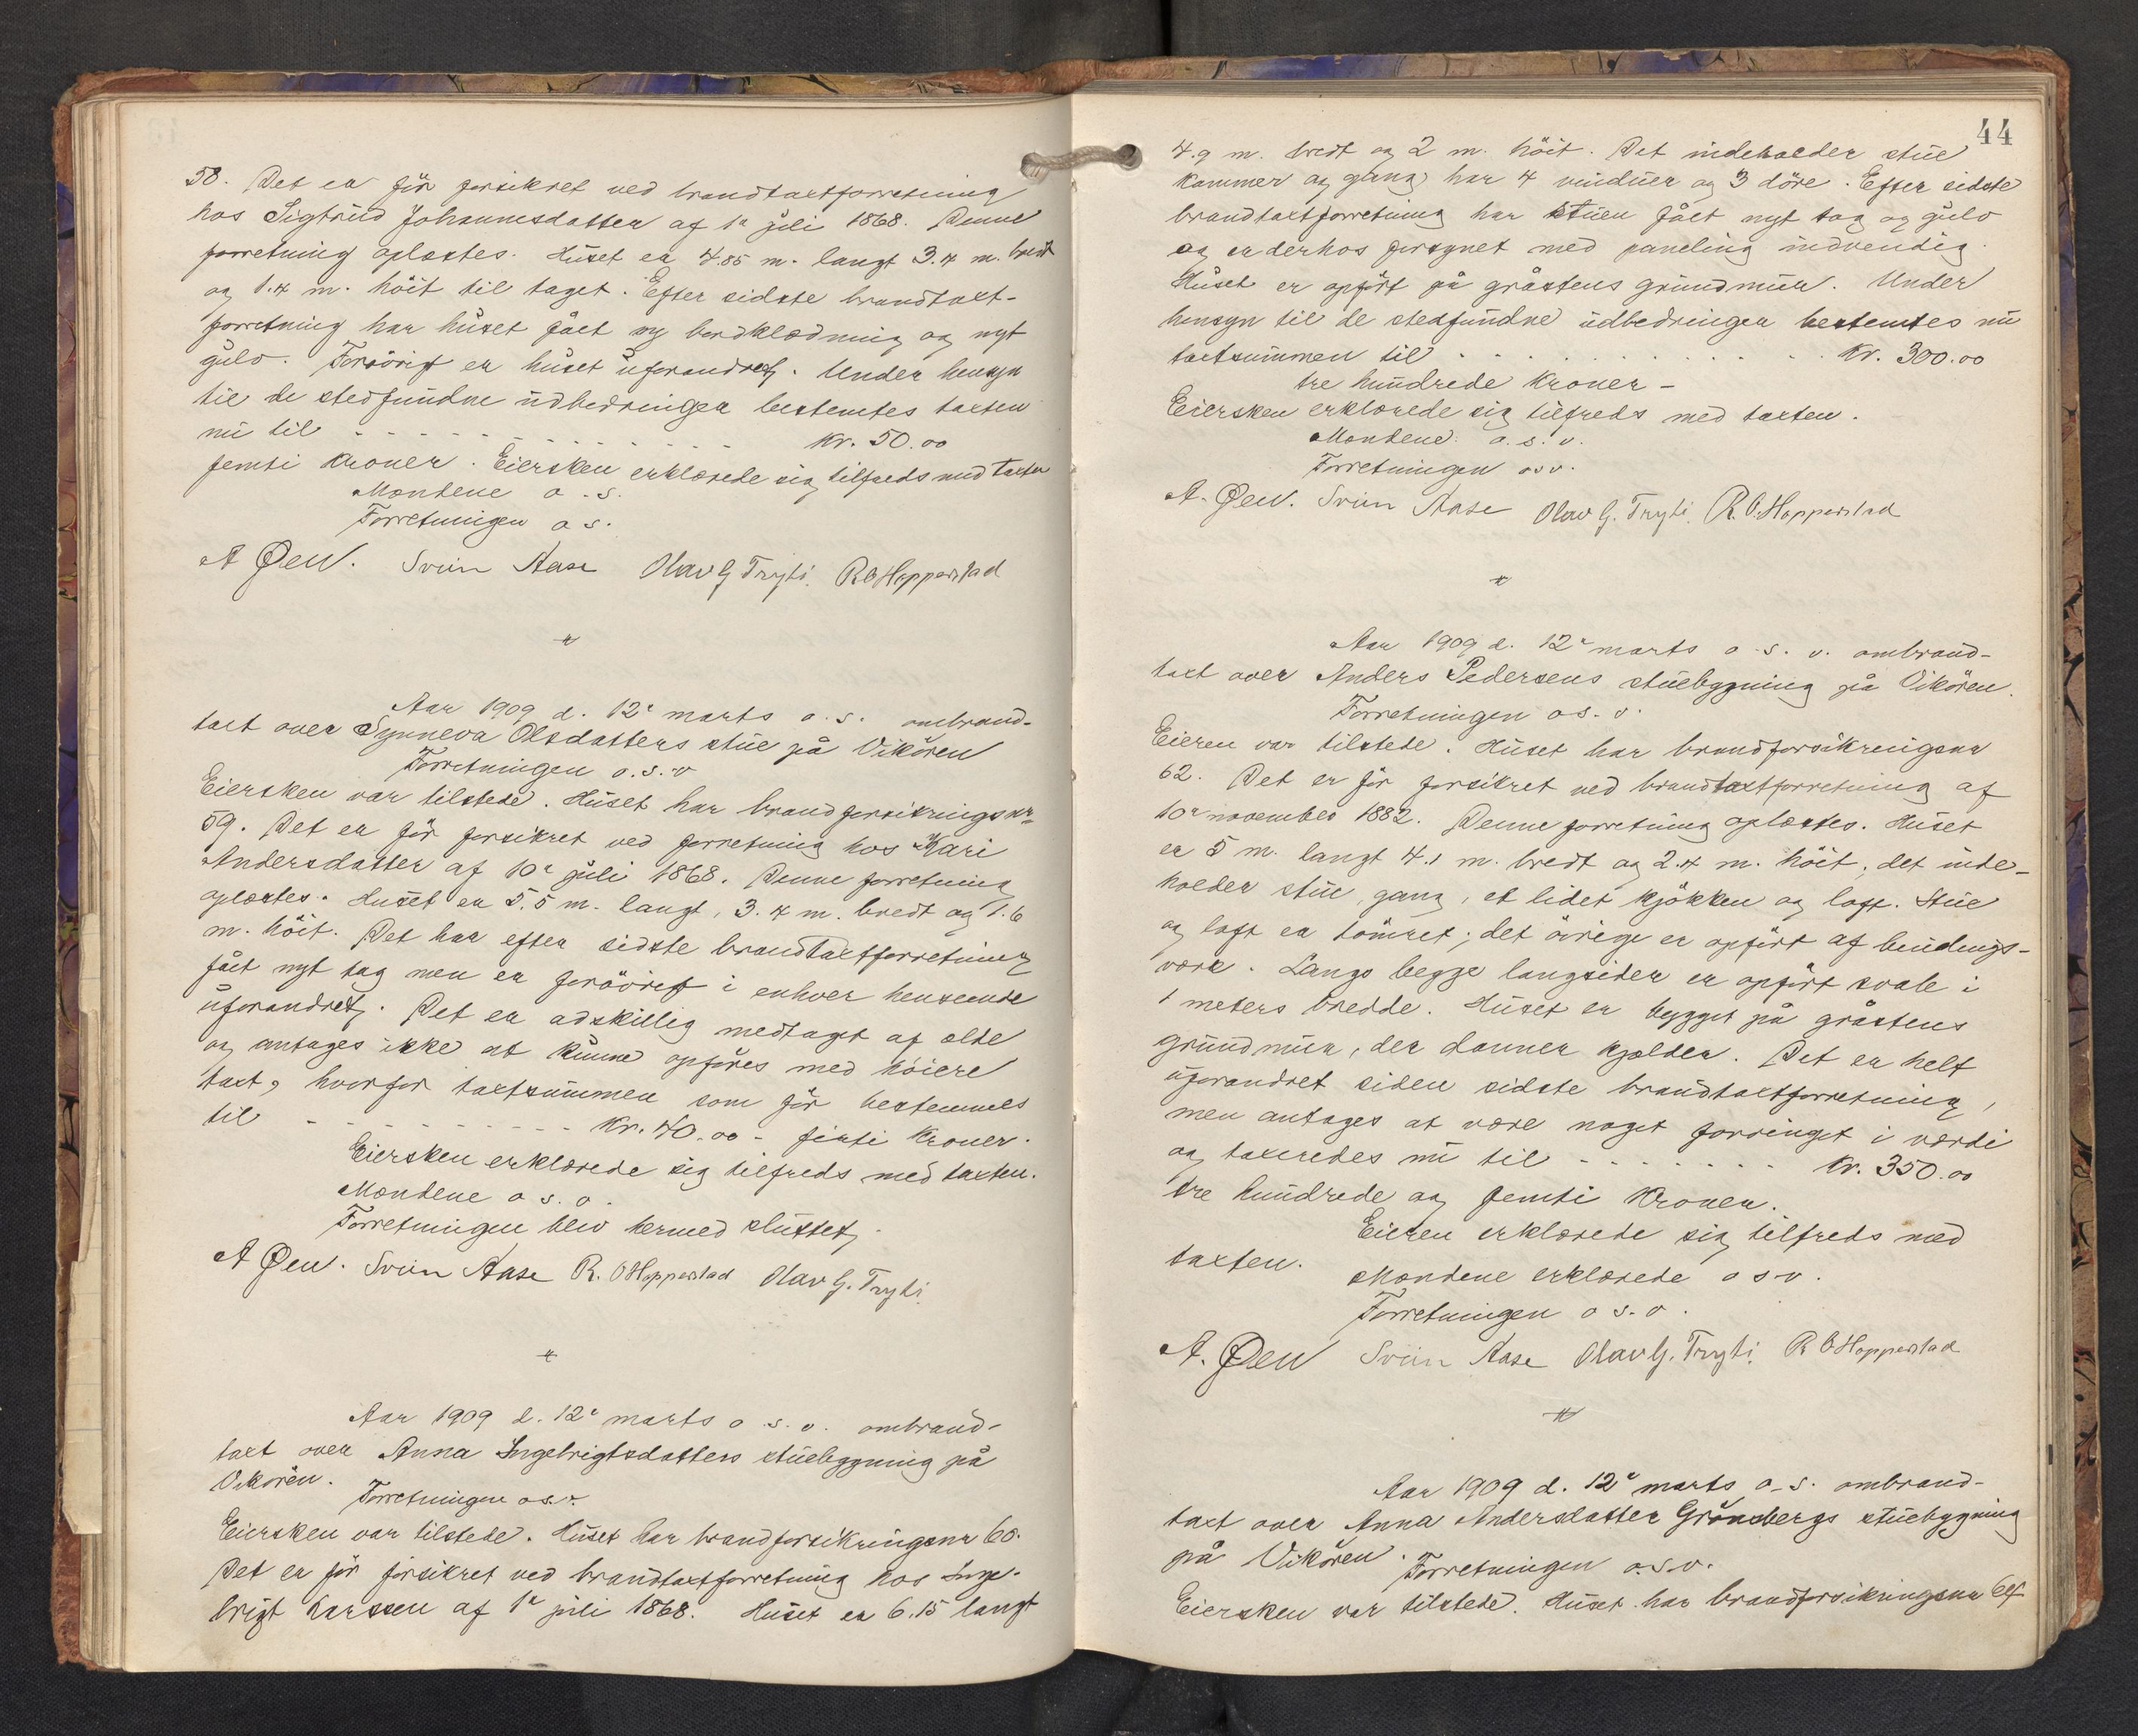 58. Det er før forsikret ved brandtaxtforretning
hos Sigtrud Johannesdatter af 1ᵉ juli 1868. Denne
forretning oplæstes. Huset er 4.85 m. langt 3.4 m. bredt
og 1.4 m. höit til taget. Efter sidste brandtaxt-
forretning har huset fået ny bordklædning og nyt
gulv. Forövrigt er huset uforandret. Under hensyn
til de stedfundne udbedringer bestemtes taxten
nu til - - - - - - - - - - - - kr. 50.00
femti kroner. Eiersken erklærede sig tilfreds med taxten
Mændene o. s.
Forretningen o s.
A Øen. Svein Aase Olav G Tryti. R O Hopperstad
Aar 1909 d. 12ᵉ marts o. s. ombrand-
taxt over Synneva Olsdatters stue på Vikören
Forretningen o. s. v
Eiersken var tilstede. Huset har brandforsikringsnr
59. Det er för forsikret ved forretning hos Kari
Andersdatter af 10ᵉ juli 1868. Denne forretning
oplæstes. Huset er 5.5 m. langt, 3.4 m. bredt og 1.6
m. höit. Det har efter sidste brandtaxtforretning
fået nyt tag men er forövrigt i enhver henseende
uforandret. Det er adskillig medtaget af ælde
og antages ikke at kunne opföres med höiere
taxt, hvorfor taxtsummen som för bestemmes
til - - - - - - - - - kr. 40.00 - firti kroner.
Eiersken erklærede sig tilfreds med taxten.
Mændene o s. v.
Forretningen blev hermed sluttet.
A Øen. Svein Aase R. O Hopperstad Olav G. Tryti.
Aar 1909 d. 12ᵉ marts o. s. v. ombrand-
taxt over Anna Ingebrigtsdatters stuebygning på
Vikören. Forretningen o s. v.
Eiersken var tilstede. Huset har brandforsikringsnr 60.
Det er för forsikret ved brandtaxtforretning hos Inge-
brigt Larssen af 1ᵉ juli 1868. Huset er 6.15 langt
44
4.9 m. bredt og 2 m. höit. Det indeholder stue
kammer og gang, har 4 vinduer og 3 döre. Efter sidste
brandtaxtforretning har stuen fået nyt tag og gulv
og er derhos forsynet med paneling indvendig.
Huset er opfört på gråstens grundmur. Under
hensyn til de stedfundne udbedringer bestemtes nu
taxtsummen til - - - - - - - - - - kr. 300.00
tre hundrede kroner -
Eiersken erklærede sig tilfreds med taxten.
Mændene o. s. v.
Forretningen osv.
A. Øen. Svein Aase Olav G. Tryti. R. O. Hopperstad
Aar 1909 d. 12ᵉ marts o. s. v. ombrand-
taxt over Anders Pedersens stuebygning på Vikören.
Forretningen o s. v.
Eieren var tilstede. Huset har brandforsikringsnr
62. Det er för forsikret ved brandtaxtforretning af
10ᵉ november 1882. Denne forretning oplæstes. Huset
er 5 m. langt 4.1 m. bredt og 2.4 m. höit; det inde-
holder stue, gang, et lidet kjökken og loft. Stue
og loft er tömret; det övrige er opfört af bindings-
værk. Langs begge langsider er opfört svale i
1 meters bredde. Huset er bygget på gråstens
grundmur, der danner kjælder. Det er helt
uforandret siden sidste brandtaxtforretning,
men antages at være noget forringet i værdi
og taxeredes nu til - - - - - - - kr. 350.00
tre hundrede og femti kroner.
Eieren erklærede sig tilfreds med
taxten.
Mændene erklærede o s. v.
Forretningen o s. v.
A. Øen Svein Aase Olav G. Tryti. R O Hopperstad
Aar 1909 d. 12ᵉ marts o. s. ombrand-
taxt over Anna Andersdatter Grönsbergs stuebygning
på Vikören. Forretningen o. s. v.
Eiersken var tilstede. Huset har brandforsikringsnr